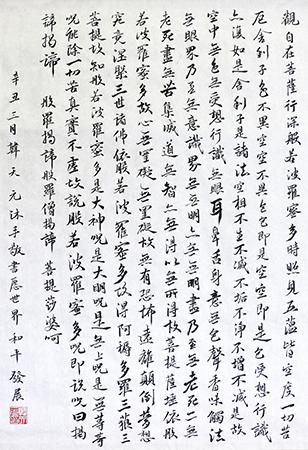 觀自在菩薩行深般若波羅蜜多時照見五蘊皆空度一切苦
厄舍利子色不異空空不異色色即是空空即是色受想行識
亦復如是舍利子是諸法空相不生不滅不垢不淨不增不減是故
空中無色無受想行識無眼耳鼻舌身意無色聲香味觸法
無眼界乃至無意識界無無明亦無無明盡乃至無老死亦無
老死盡無苦集滅道無智亦無得以無所得故菩提薩埵依般
若波羅蜜多故心無罣礙無罣礙故無有恐怖遠離顛倒夢想
究竟涅槃三世諸佛依般若波羅蜜多故得阿耨多羅三藐三
菩提故知般若波羅蜜多是大神咒是大明咒是無上咒是無等等
咒能除一切苦真實不虛故說般若波羅蜜多咒即說咒曰揭
諦揭諦 般羅揭諦般羅僧揭諦 菩提莎婆呵
辛丑三月韓天元沐手敬書願世界和平發展